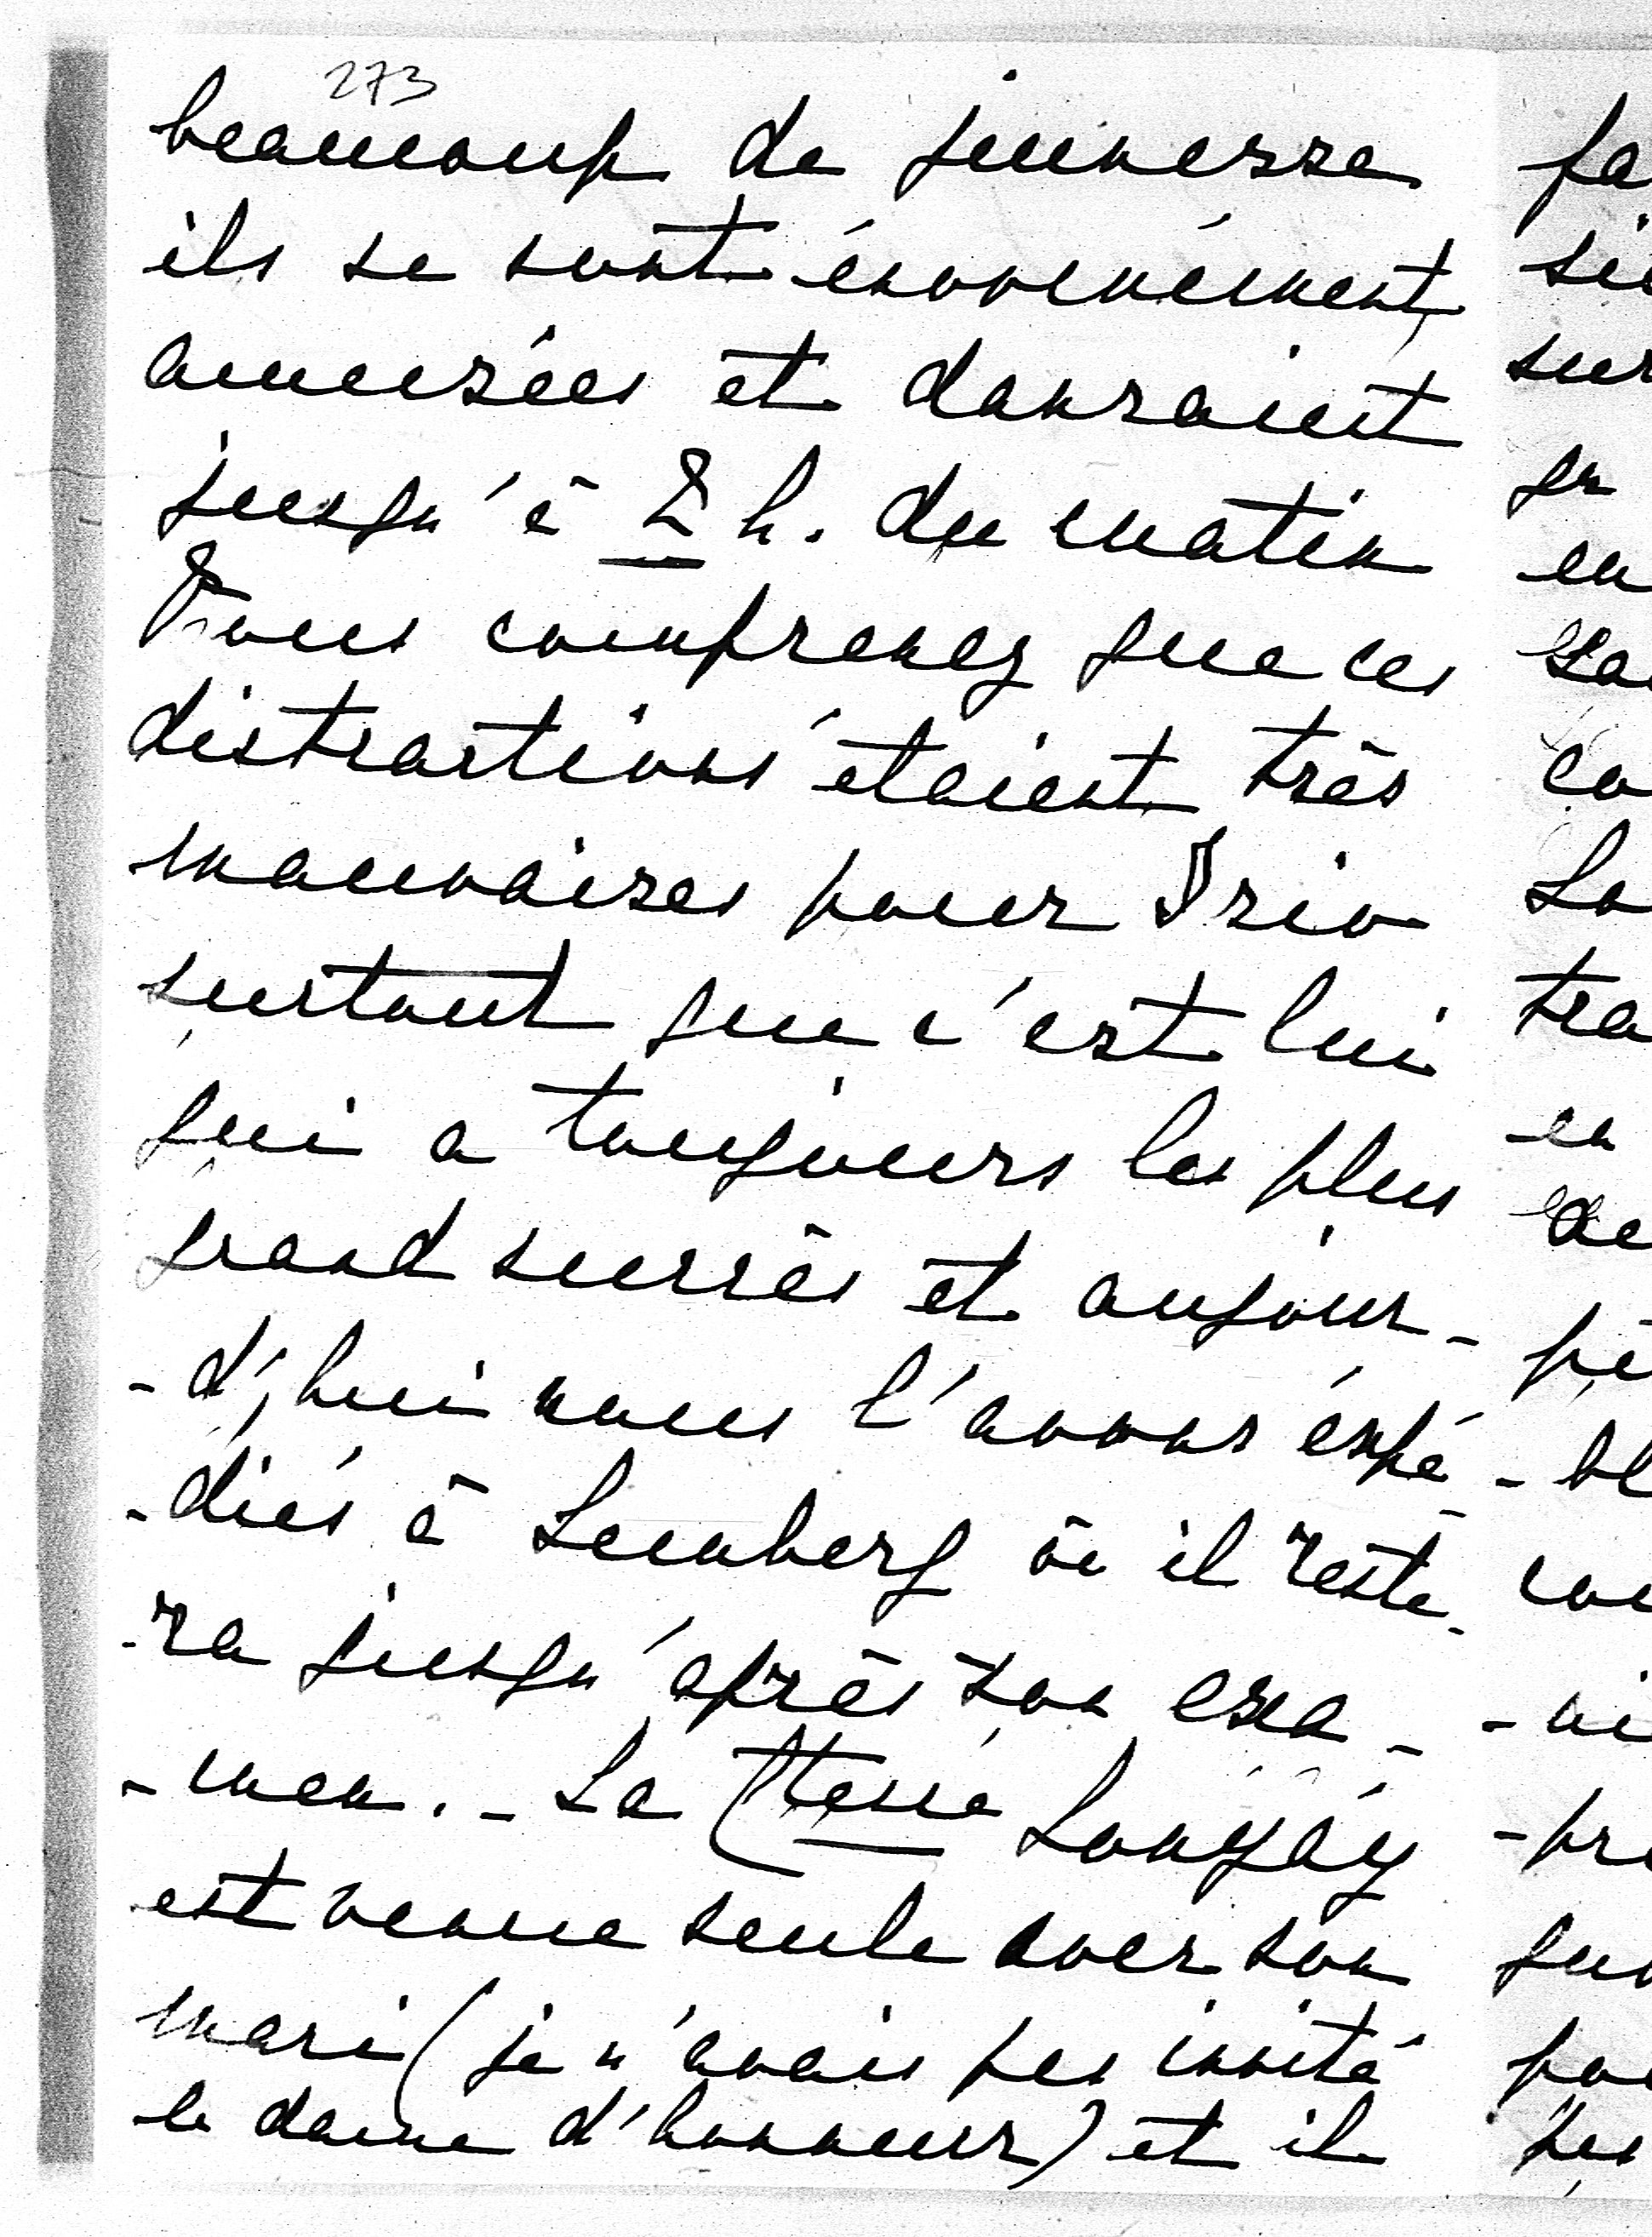 273
beaucoup de jeunesse
ils se sont énormément
amusées et dansaient
jusqu'à 8 h. du matin
Vous comprenez que ces
distractions étaient très
mauvaises pour
surtout que c'est lui
qui a toujours les plus
grand succès et aujour-
-d'hui nous l'avons éxpé-
-diés à Lemberg où il reste-
-ra jusqu'après son exa-
-men. - La Ctesse Lonyáy
est venue seule avec son
mari (je n'avais pas invité
la dame d'honneur) et il